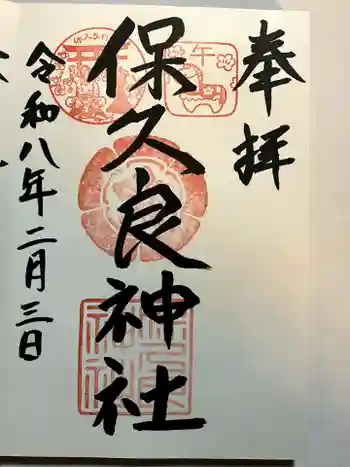 奉拝
午
保久良神社
令和八年二月三日